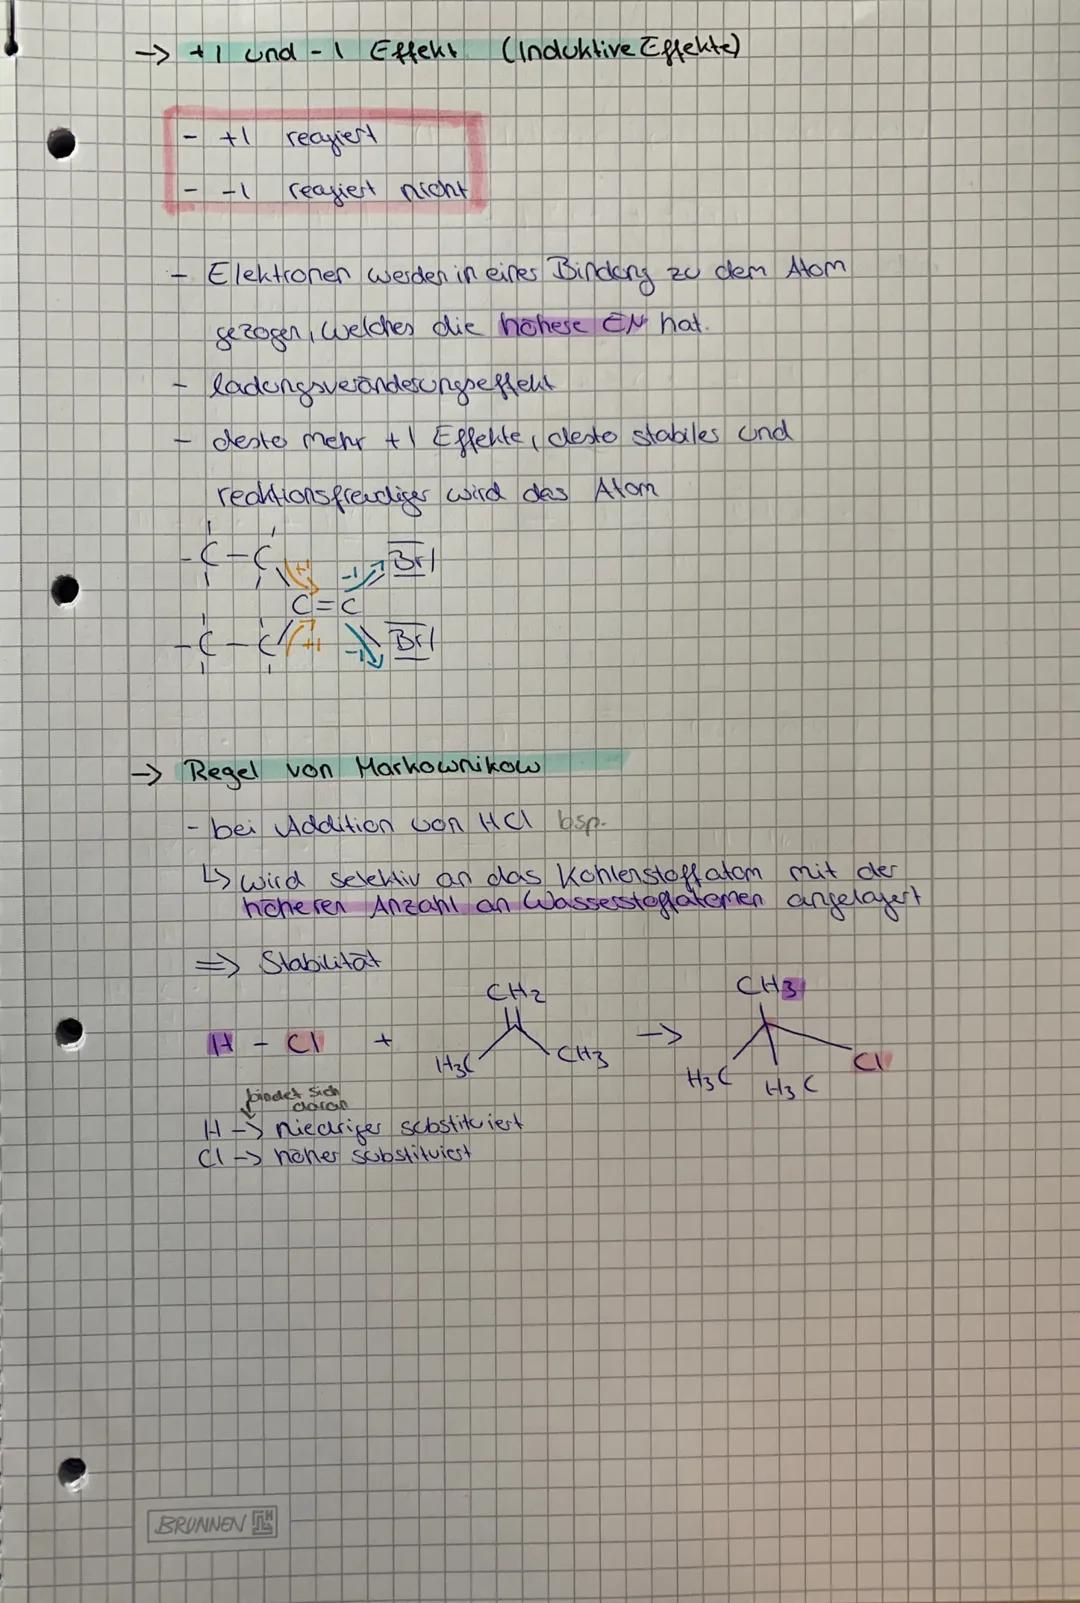 -> +I und -I Effekt (Induktive Effekte)
- +I reagiert
- -I reagiert nicht
- Elektronen werden in einer Bindung zu dem Atom
gezogen, welches die höhere EN hat.
- ladungsveränderungseffekt
- desto mehr +I Effekte, desto stabiler und
reaktionsfreudiger wird das Atom
-C-C +I -I Br|
C=C
-C-C +I -I Br|
-> Regel von Markownikow
- bei Addition von HCl bsp.
↳ wird selektiv an das Kohlenstoffatom mit der
höheren Anzahl an Wasserstoffatomen angelagert
=> Stabilität
CH2 CH3
H - Cl + H3C CH3 -> H3C H3C Cl
bindet sich
daran
H -> niedriger substituiert
Cl -> höher substituiert
BRUNNEN